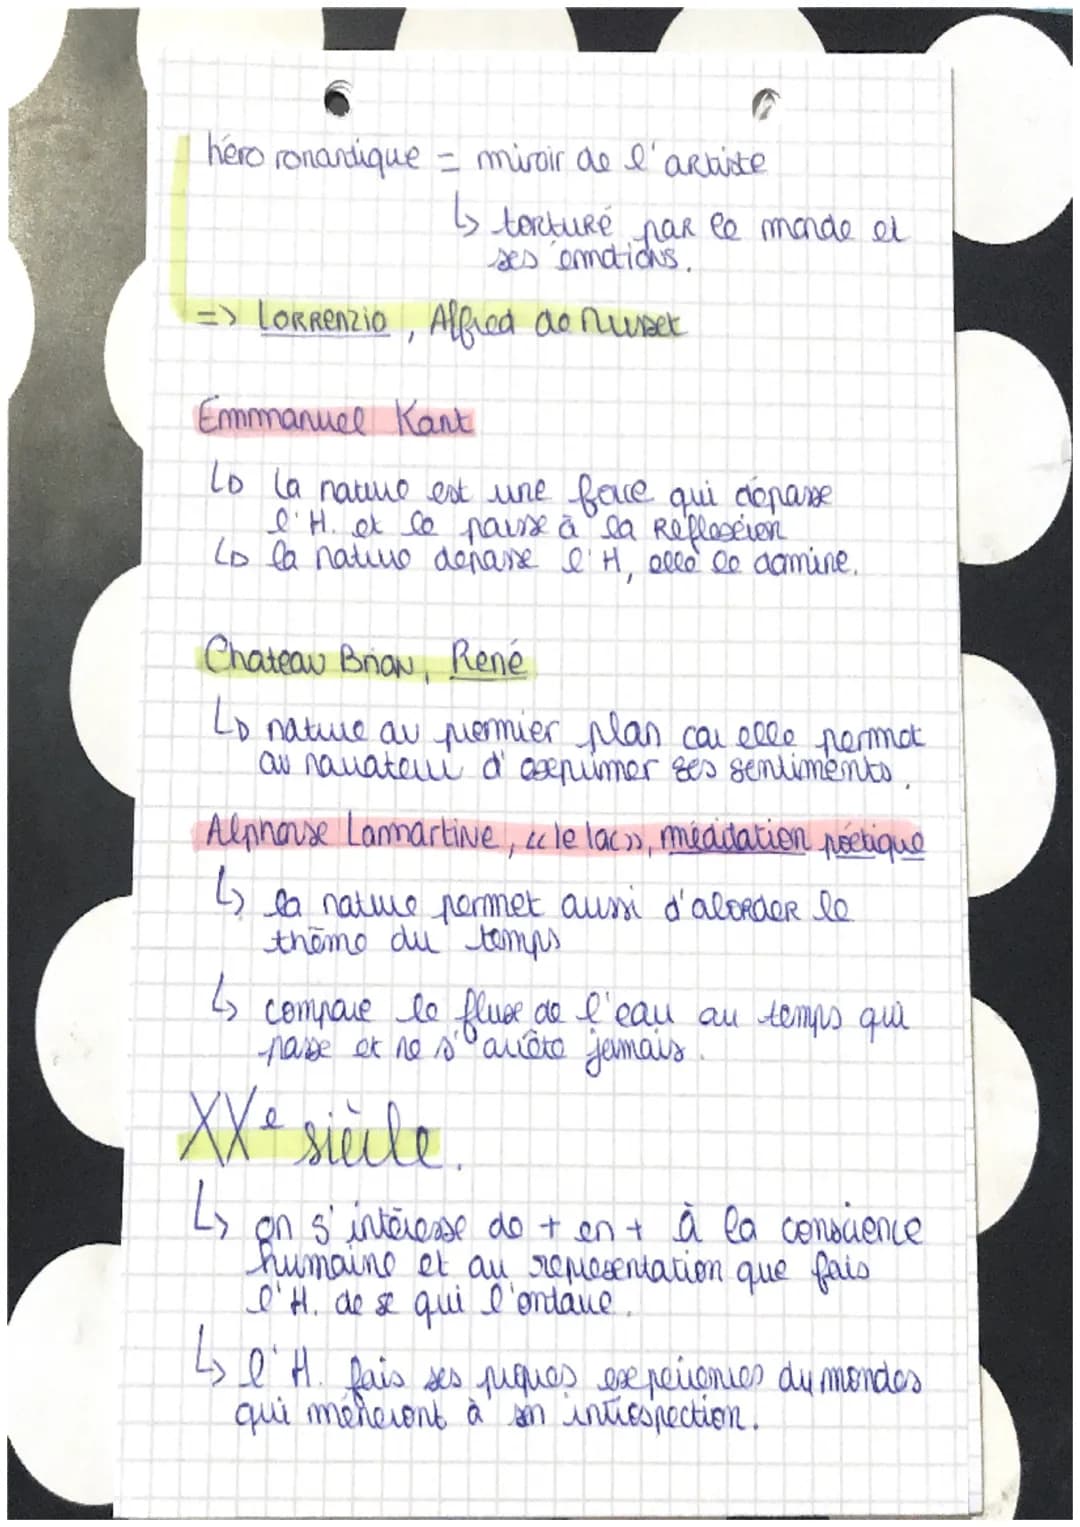 héro romantique = miroir de l'artiste
↳ torturé par le monde et
ses émotions.
=> LORRENZIO, Alfred de Musset
Emmanuel Kant
↳ la nature est une force qui dépasse
l'H. et le pousse à la Réflexion
↳ la nature dépasse l'H, elle le domine.
Chateau Brian, René
↳ nature au premier plan car elle permet
au narrateur d'exprimer ses sentiments.
Alphonse Lamartine, «le lac», méditation poétique
↳ la nature permet aussi d'aborder le
thème du temps
↳ compare le fluxe de l'eau au temps qui
passe et ne s'arrête jamais.
XXe siècle.
↳ on s'intéresse de + en + à la conscience
humaine et au representation que fais
l'H. de se qui l'entoure.
↳ l'H. fais ses propres expériences du mondes
qui mèneront à son introspection.